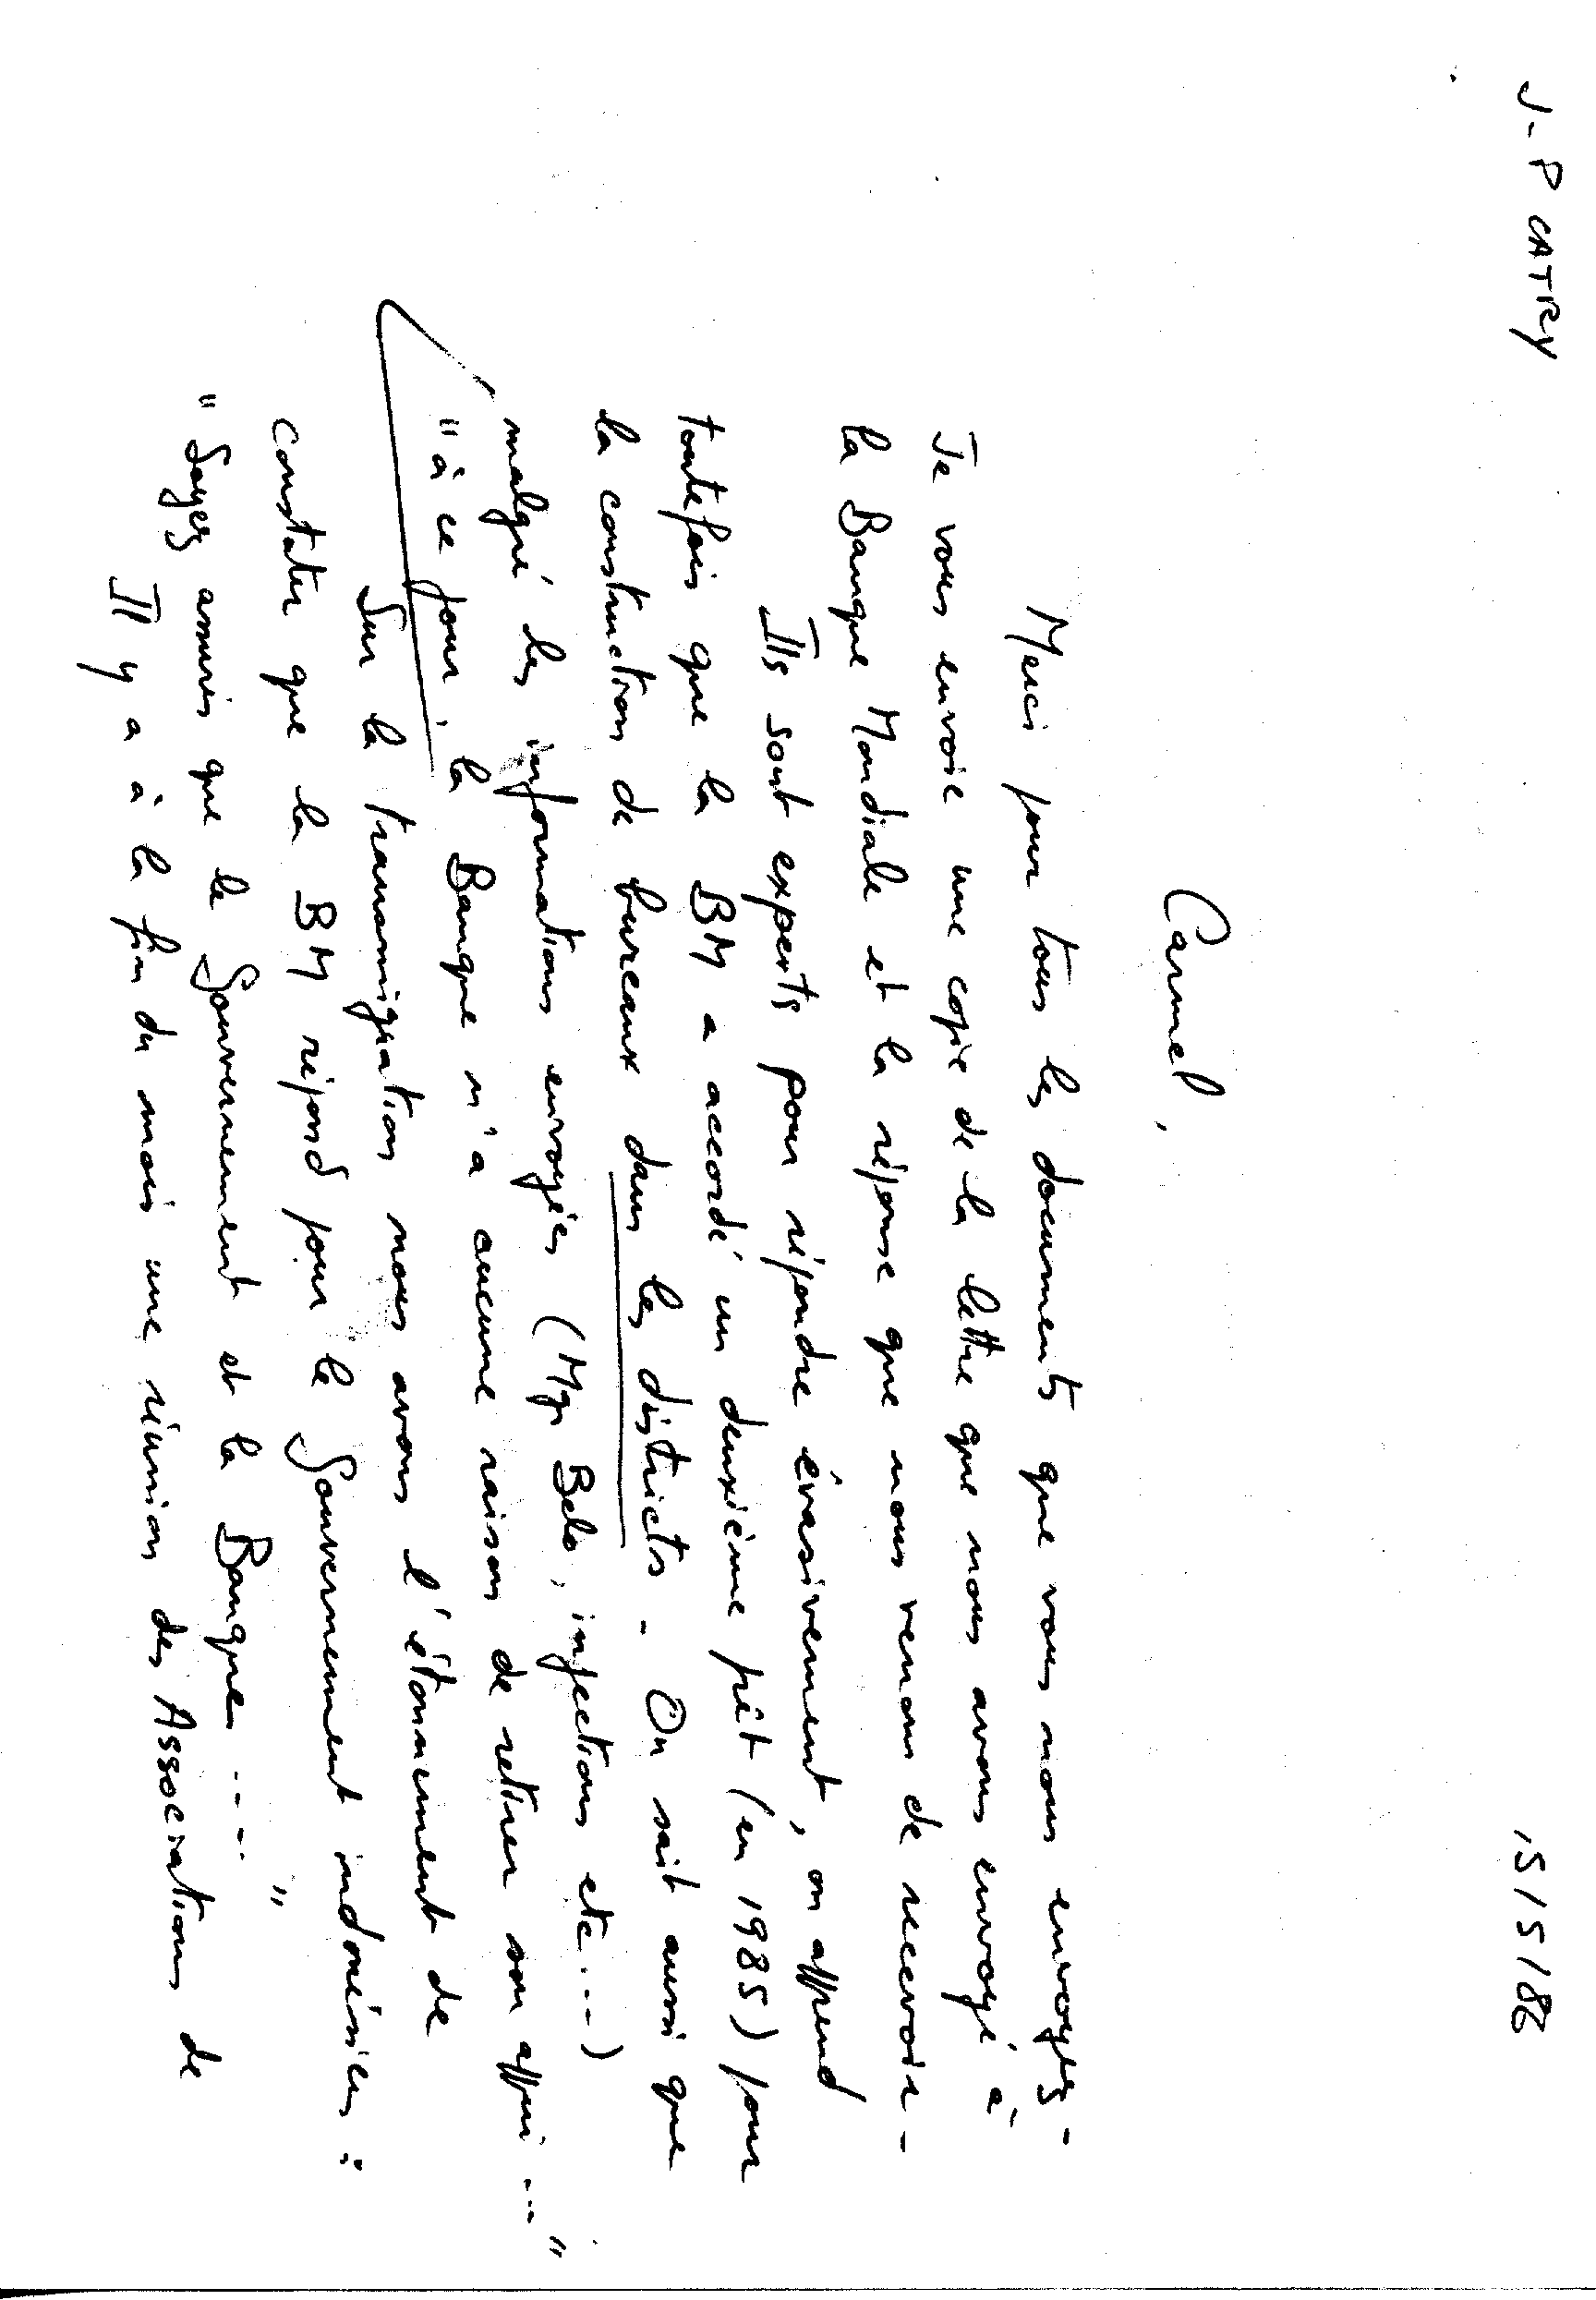 J-P CATRY
15/5/86
Carmel,
Merci pour tous les documents que vous nous envoyez-
Je vous envoie une copie de la lettre que nous avons envoyé à
la Banque Mondiale et la réponse que nous venons de recevoir-
Ils sont experts pour répondre évasivement, on apprend
toutefois que la BM a accordé un deuxième prêt (en 1985) pour
la construction de bureaux dans les districts - On sait aussi que
malgré les informations envoyées (Mgr Belo, injections etc...)
"à ce jour, la Banque n'a aucune raison de retirer son appui..."
Sur la transmigration nous avons l'étonnement de
constater que la BM répond pour le Gouvernement indonésien:
"Soyez assurés que le Gouvernement et la Banque....."
Il y a à la fin du mois une réunion des Associations de